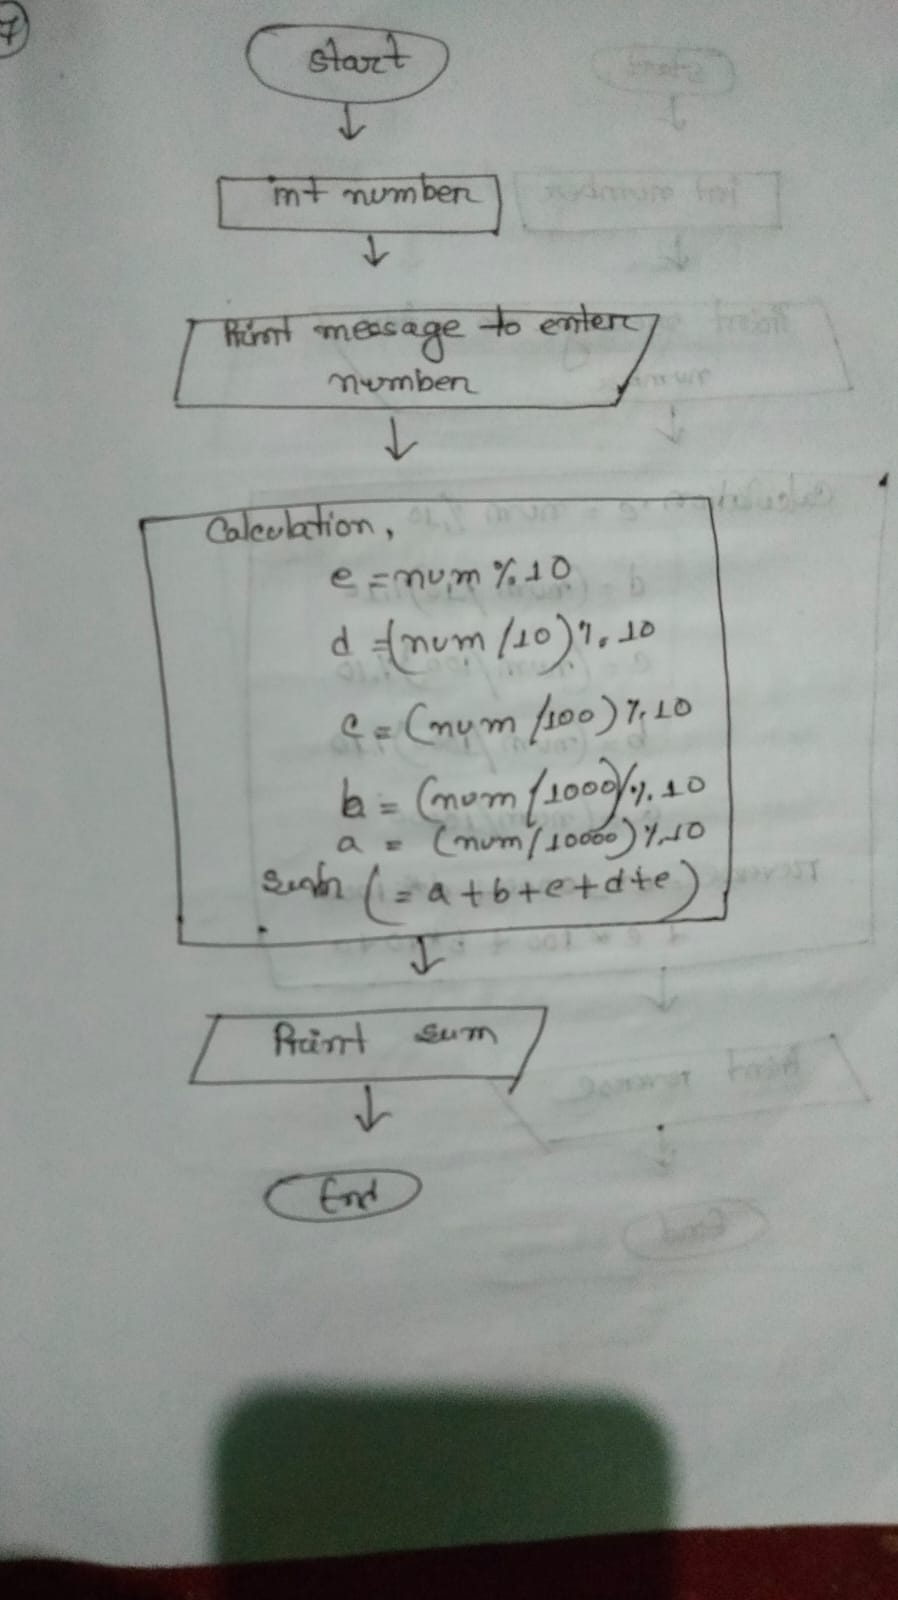 7
Start
int number
Print message to enter
number
Calculation,
e = num % 10
d = (num / 10) % 10
c = (num / 100) % 10
b = (num / 1000) % 10
a = (num / 10000) % 10
(= a + b + c + d + e)
Print sum
End